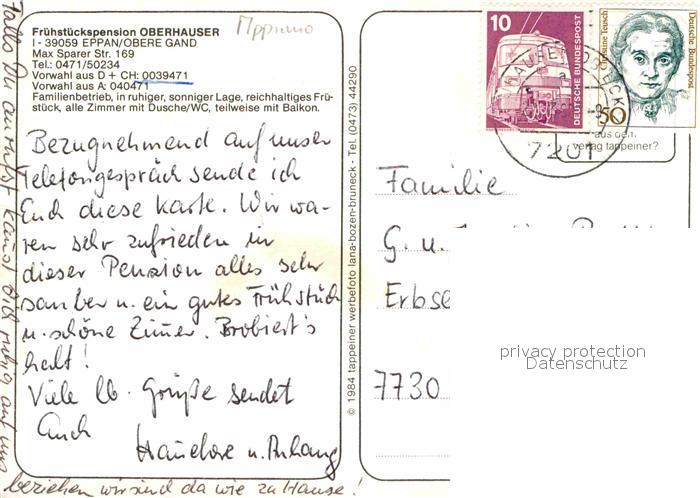 Frühstückspension OBERHAUSER
I - 39059 EPPAN/OBERE GAND
Max Sparer Str. 169
Tel.: 0471/50234
Vorwahl aus D + CH: 0039471
Vorwahl aus A: 040471
Familienbetrieb, in ruhiger, sonniger Lage, reichhaltiges Frü-
stück, alle Zimmer mit Dusche/WC, teilweise mit Balkon.
Bezugnehmend auf unser
Telefongespräch sende ich
Euch diese Karte. Wir wa-
ren sehr zufrieden in
dieser Pension alles sehr
sauber u. ein gutes Frühstück
u. schöne Zimmer. Probiert's
halt!
Viele lb. Grüße sendet
Euch
Hanelore u. Anhang
Falls Du anrufst kanst Dich ruhig auf uns
beziehen wir sind da wie zu Hause!
© 1984 tappeiner werbefoto lana-bozen-bruneck - Tel. (0473) 44290
10
DEUTSCHE BUNDESPOST
Christine Teusch
Deutsche Bundespost
50
7201
aus dem
verlag tappeiner?
Familie
G. u.
Erbse
7730
privacy protection
Datenschutz